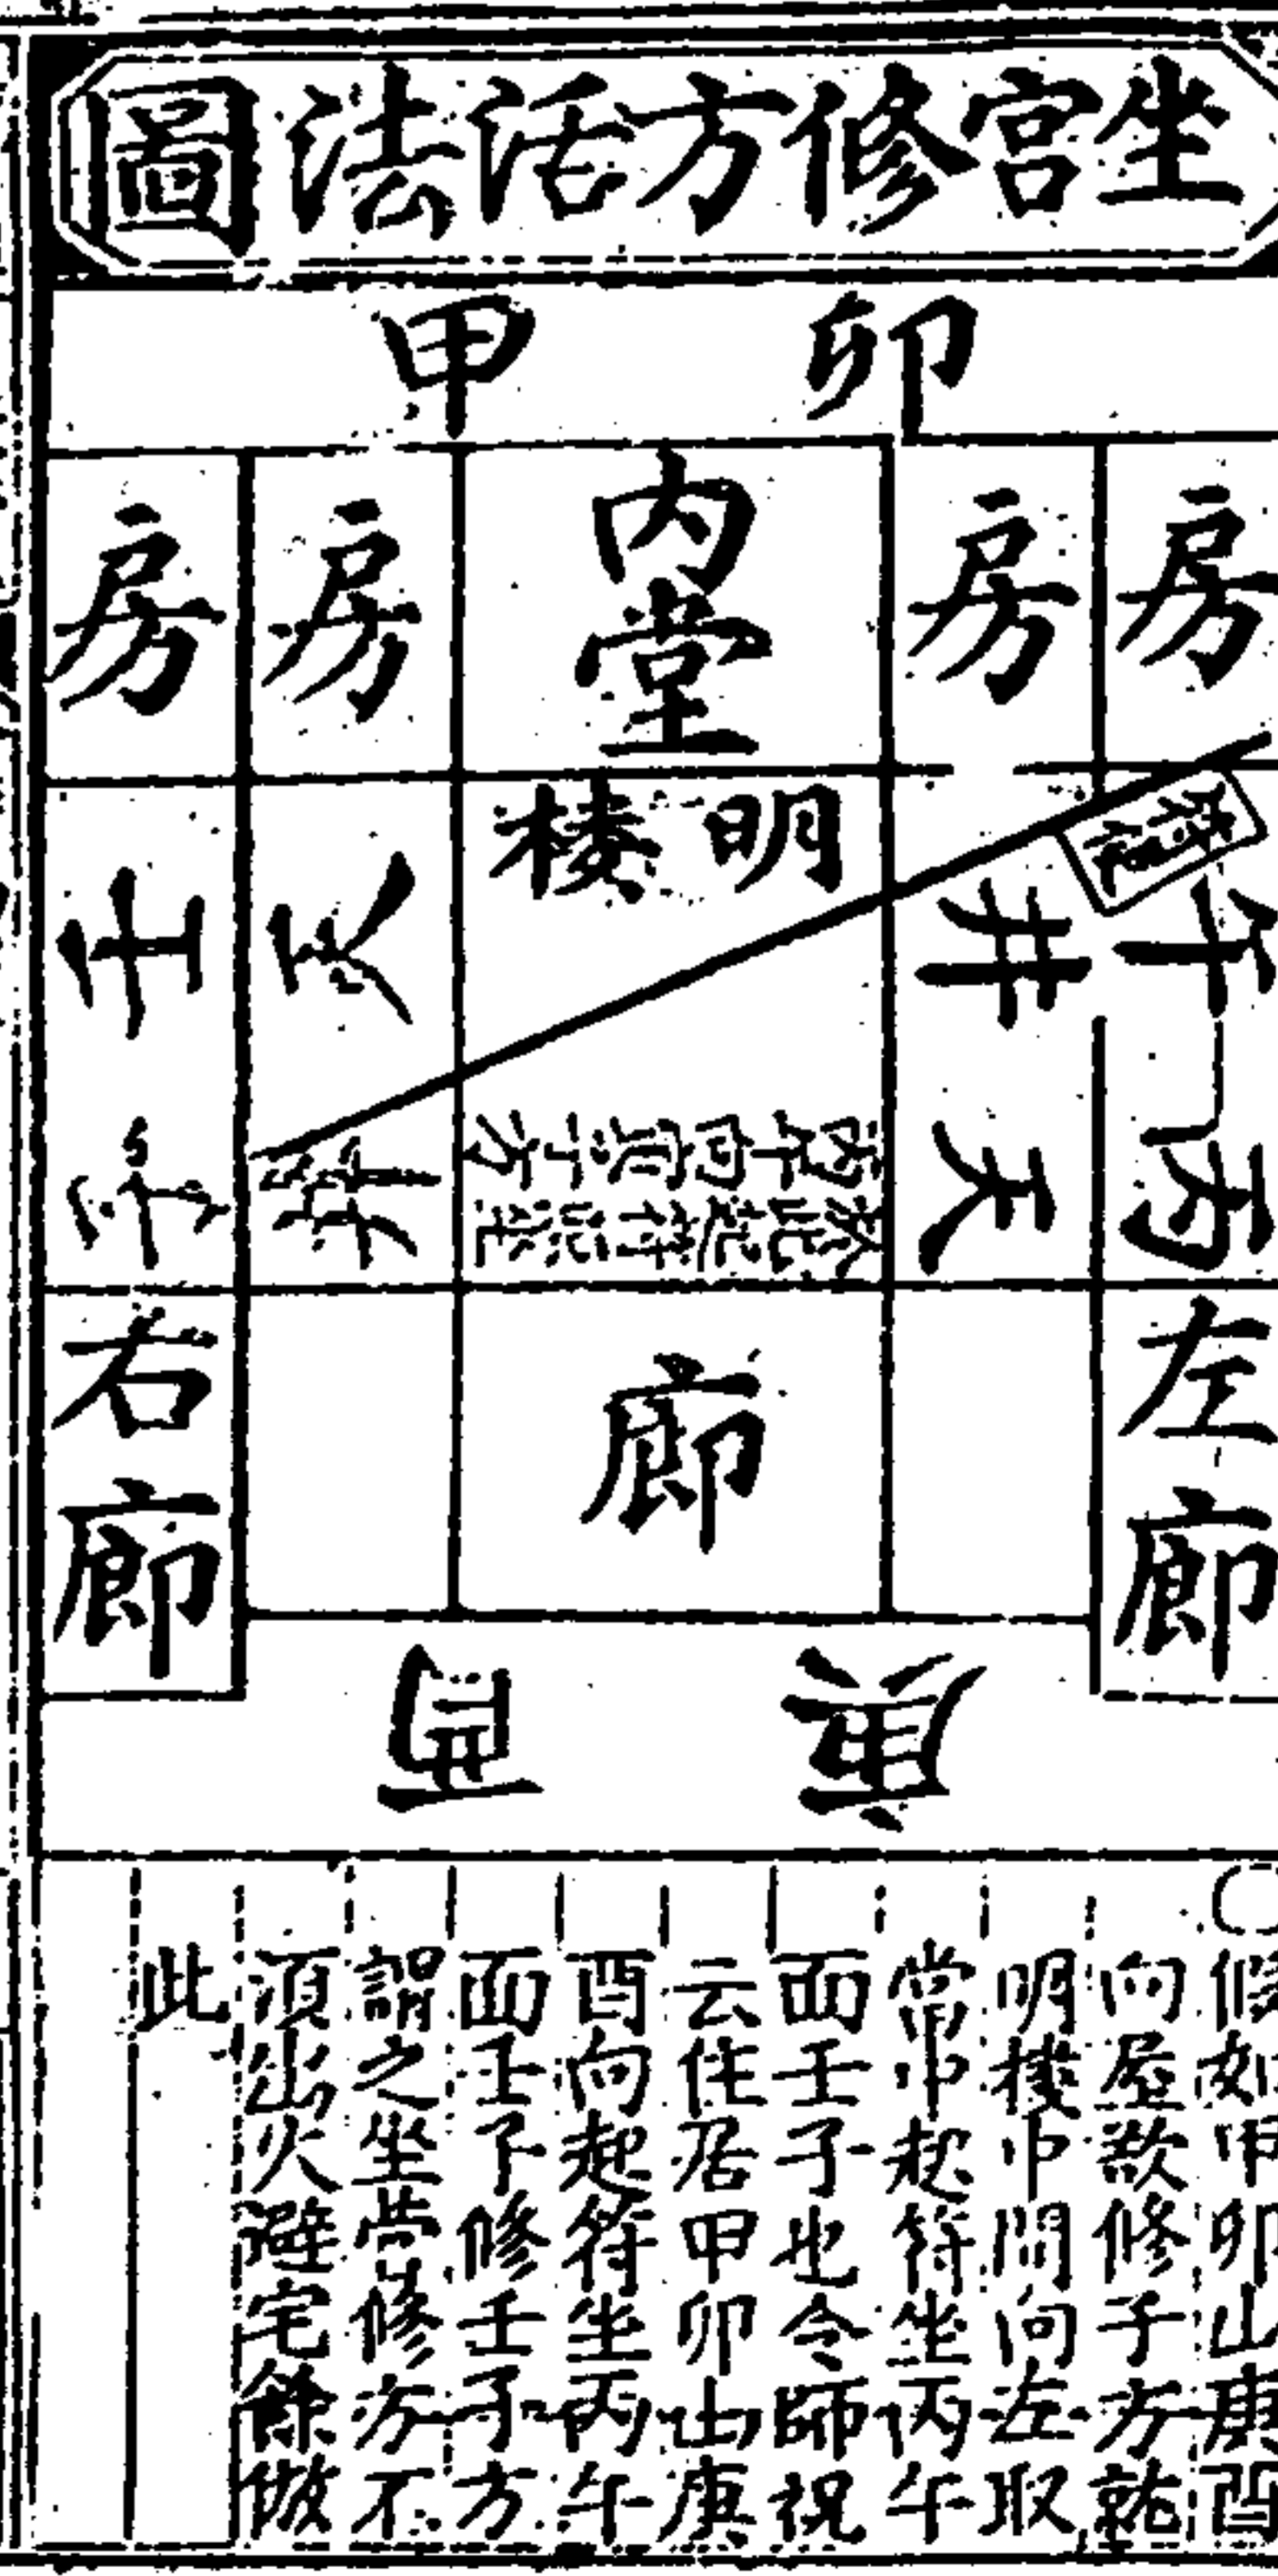 坐宮修方活法圖
卯 甲
房
房
內堂
房
房
明楼
井
午
丙
天
井
天
壬
子
左廊
廊
右廊
庚
酉
假如甲卯山庚酉
向屋欲修子方就
明楼中間向左取
常中起符坐丙午
面壬子也令師祝
云住居甲卯山庚
酉向起符坐丙午
面壬子修壬子方
謂之坐宮修方不
須出火避宅餘倣
此